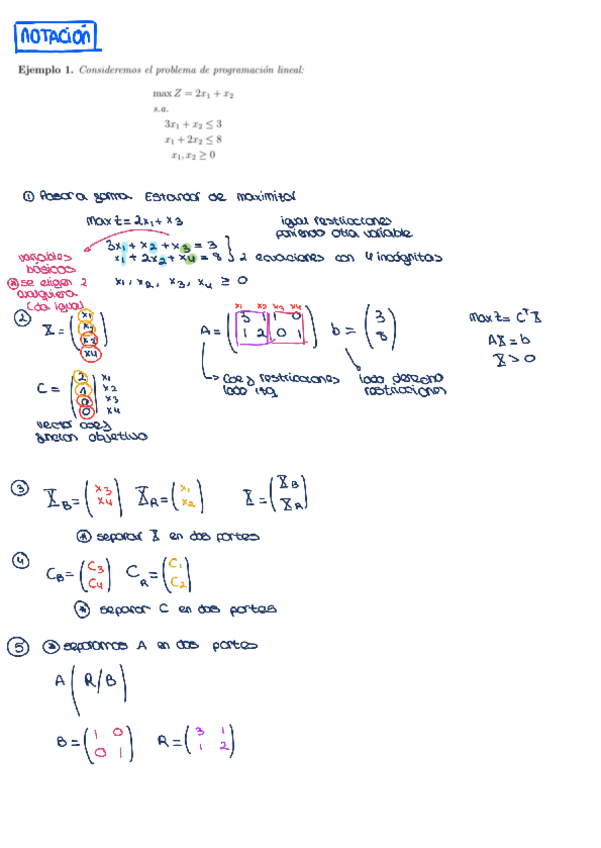 NOTACIÓN
Ejemplo 1. Consideremos el problema de programación lineal:
max Z = 2x₁ + x₂
s.a.
3x₁ + x₂ ≤ 3
x₁ + 2x₂ ≤ 8
x₁, x₂ ≥ 0
① Pasar a forma Estandar de maximizar
max z = 2x₁ + x₃
igual restricciones
poniendo otra variable
3x₁ + x₂ + x₃ = 3
x₁ + 2x₂ + x₄ = 8 } 2 ecuaciones con 4 incógnitas
x₁, x₂, x₃, x₄ ≥ 0
variables
básicas
se eligen 2
cualquiera
(da igual)
② X = (x₁ x₂ x₃ x₄)
x₁ x₂ x₃ x₄
A = (3 1 1 0
1 2 0 1)
b = (3 8)
max z = CᵀX
AX = b
X > 0
Coef restricciones
lado izq
lado derecho
restricciones
C = (2 1 0 0) x₁ x₂ x₃ x₄
vector coef
funcion objetivo
③ X_B = (x₃ x₄) X_R = (x₁ x₂) X = (X_B X_R)
separar X en dos partes
④ C_B = (C₃ C₄) C_R = (C₁ C₂)
separar C en dos partes
⑤ separamos A en dos partes
A (R/B)
B = (1 0
0 1)
R = (3 1
1 2)